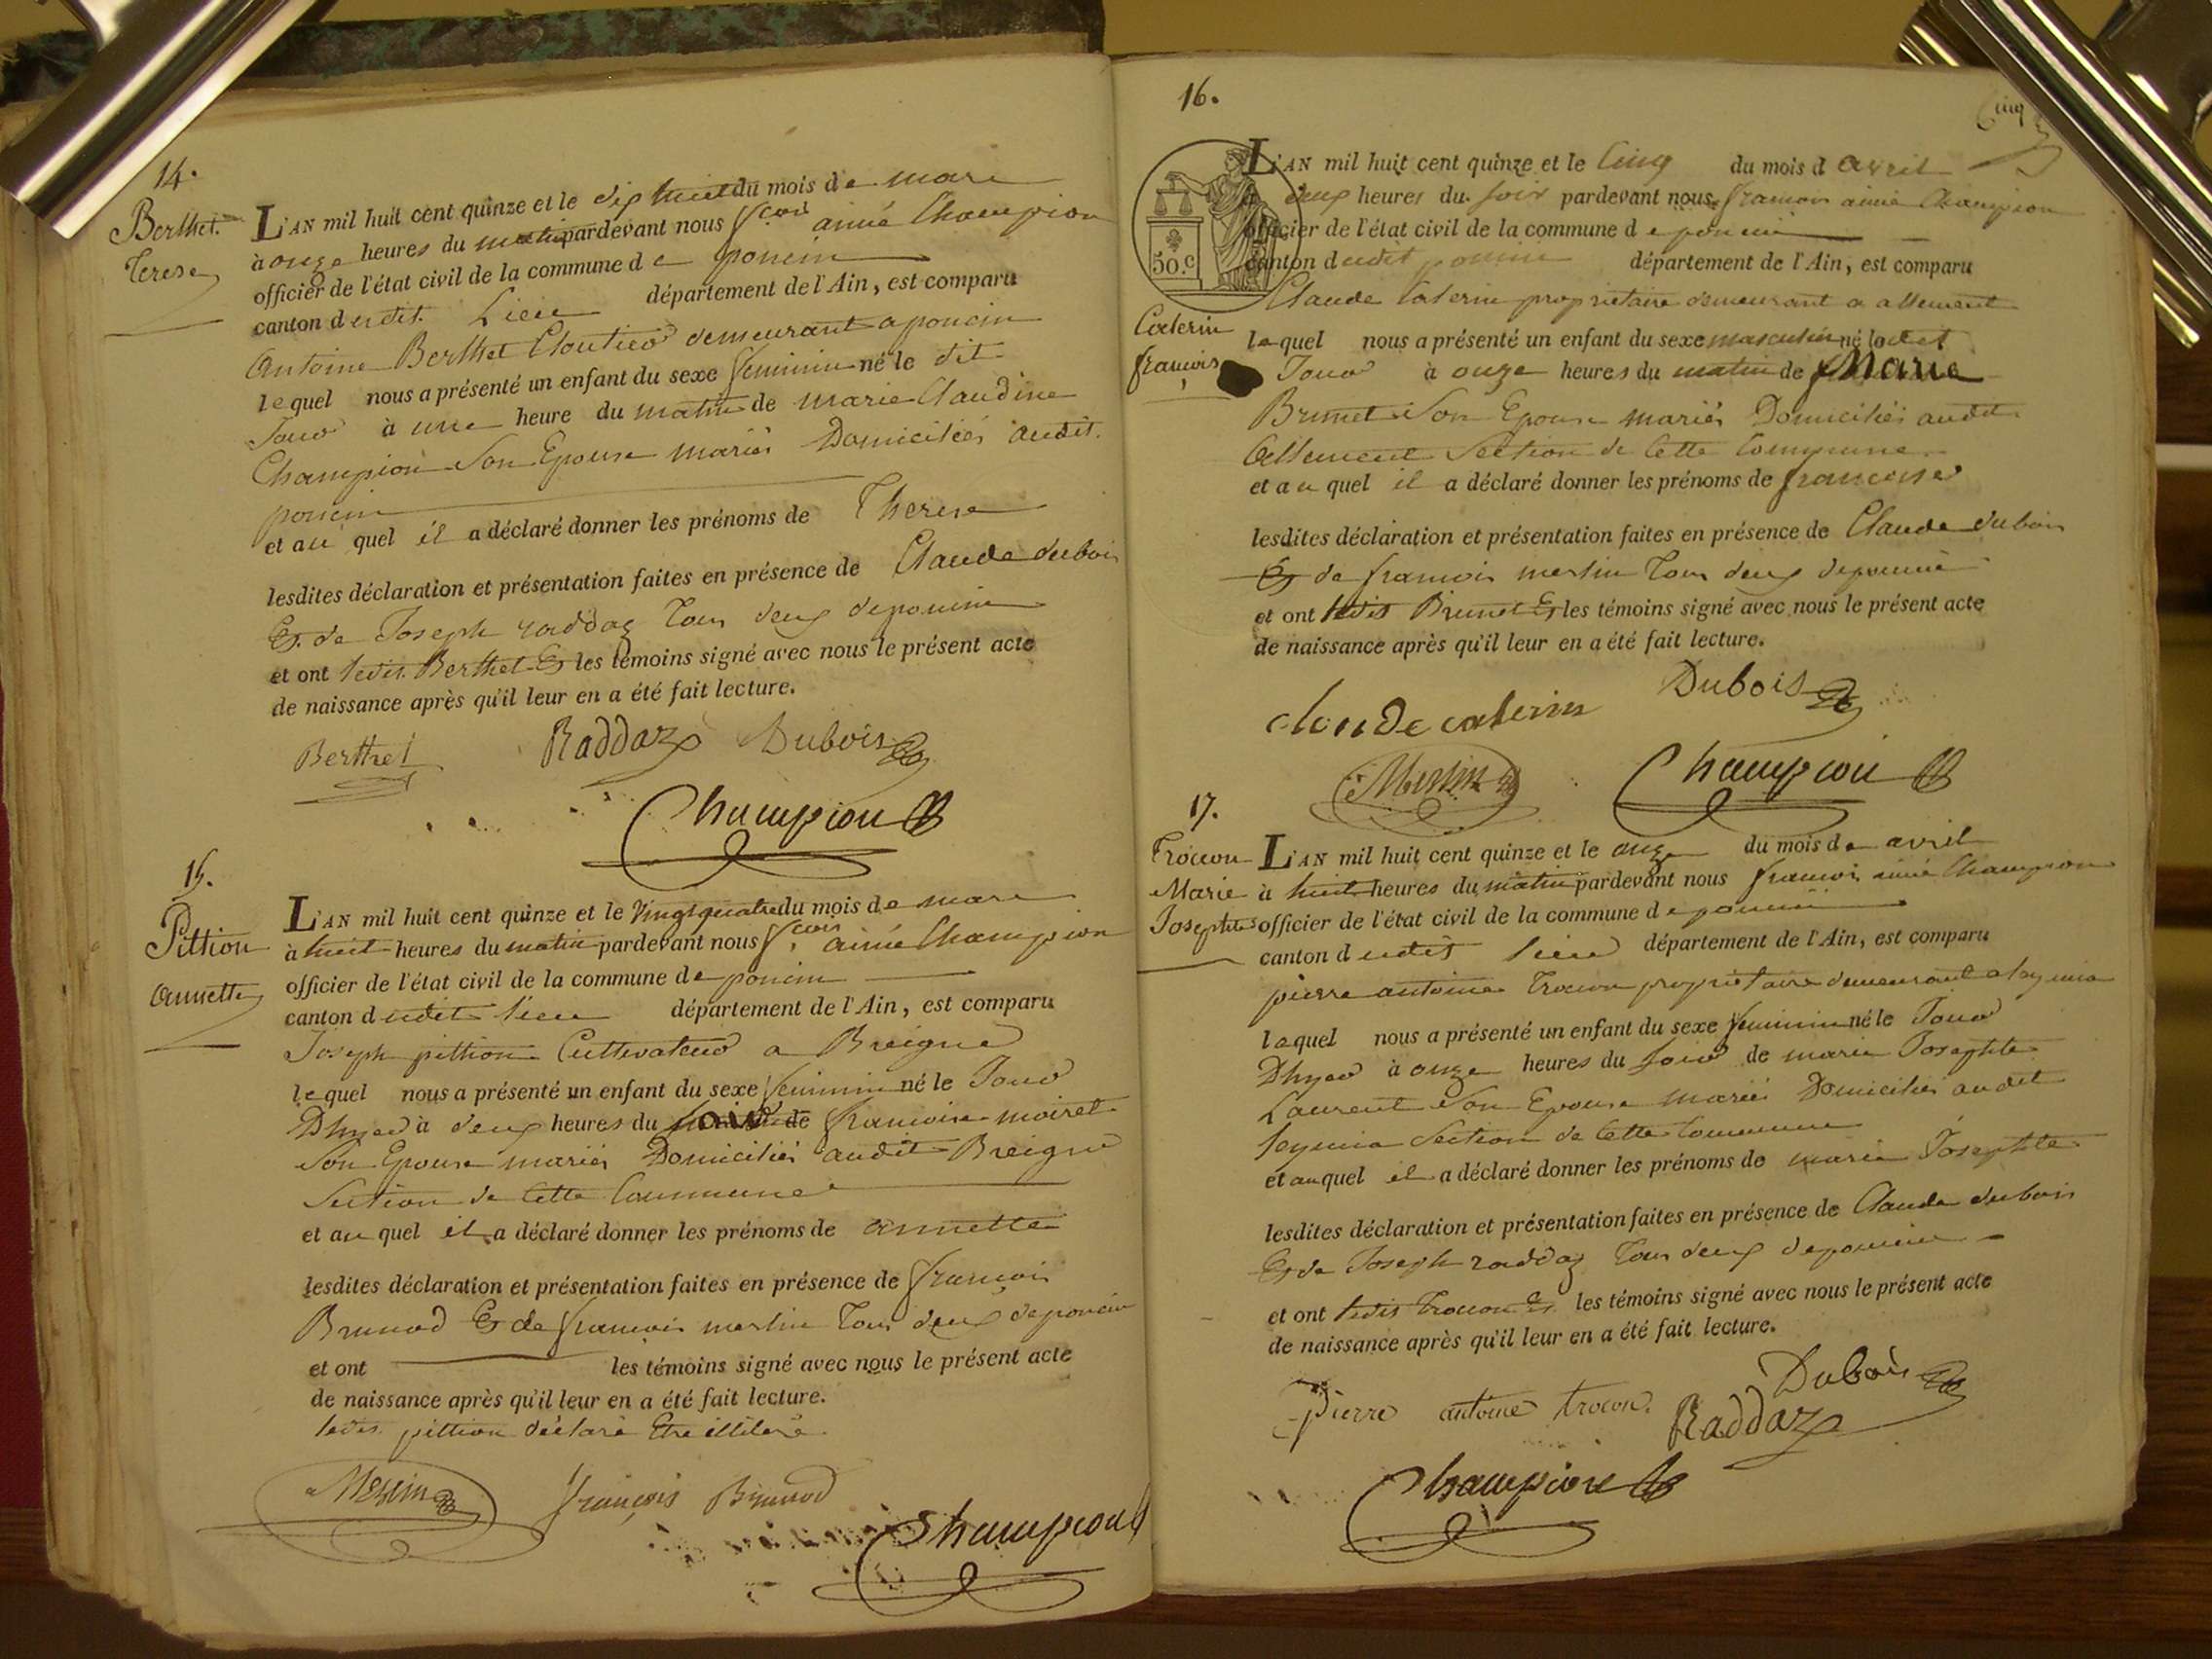 14.
Berthet
Terese
L'AN mil huit cent quinze et le dix huit du mois de mars
à onze heures du matin pardevant nous fcois aimé Champion
officier de l'état civil de la commune de poncin
canton dudit Lieu département de l'Ain, est comparu
Antoine Berthet Cloutier demeurant a poncin
lequel nous a présenté un enfant du sexe feminin né le dit
Jour à une heure du matin de marie Claudine
Champion Son Epouse mariés Domiciliés audit
poncin
et au quel il a déclaré donner les prénoms de Therese
lesdites déclaration et présentation faites en présence de Claude dubois
Et de Joseph raddaz Tous deux de poncin
et ont ledit Berthet Et les témoins signé avec nous le présent acte
de naissance après qu'il leur en a été fait lecture.
Berthet Raddaz Dubois
Champion
15.
Pittion
annette
L'AN mil huit cent quinze et le vingt quatre du mois de mars
à huit heures du matin pardevant nous fcois aimé Champion
officier de l'état civil de la commune de poncin
canton dudit lieu département de l'Ain, est comparu
Joseph pittion Cultivateur a Breigne
lequel nous a présenté un enfant du sexe feminin né le Jour
D'hyer à deux heures du soir de francoise moiret
Son Epouse mariés Domiciliés audit Breigne
Section de Cette Commune
et au quel il a déclaré donner les prénoms de annette
lesdites déclaration et présentation faites en présence de francois
Brunod Et de francois merlin Tous deux de poncin
et ont les témoins signé avec nous le présent acte
de naissance après qu'il leur en a été fait lecture.
ledit pittion déclaré Etre illiteré
Merlin françois Brunod
Champion
16.
Cinq
50.c
Caterin
françois
L'AN mil huit cent quinze et le Cinq du mois d avril
à deux heures du soir pardevant nous francois aimé Champion
officier de l'état civil de la commune de poncin
canton dudit poncin département de l'Ain, est comparu
Claude Caterin propriétaire demeurant a allement
lequel nous a présenté un enfant du sexe masculin né le dit
Jour à onze heures du matin de Marie
Brunet Son Epouse mariés Domiciliés audit
Allement Section de Cette Commune
et au quel il a déclaré donner les prénoms de francoise
lesdites déclaration et présentation faites en présence de Claude dubois
Et de francois merlin Tous deux de poncin
et ont ledit Brunet Et les témoins signé avec nous le présent acte
de naissance après qu'il leur en a été fait lecture.
claude caterin Dubois
Merlin Champion
17.
Trocon
Marie
Josephte
L'AN mil huit cent quinze et le onze du mois de avril
à huit heures du matin pardevant nous francois aimé Champion
officier de l'état civil de la commune de poncin
canton dudit lieu département de l'Ain, est comparu
pierre antoine Trocon propriétaire demeurant a leymia
lequel nous a présenté un enfant du sexe feminin né le Jour
D'hyer à onze heures du soir de marie Josephte
Laurent Son Epouse mariés Domiciliés audit
leymia Section de Cette Commune
et au quel il a déclaré donner les prénoms de marie Josephte
lesdites déclaration et présentation faites en présence de Claude dubois
Et de Joseph raddaz Tous deux de poncin
et ont ledit Trocon Et les témoins signé avec nous le présent acte
de naissance après qu'il leur en a été fait lecture.
Dubois
pierre antoine trocon. Raddaz
Champion